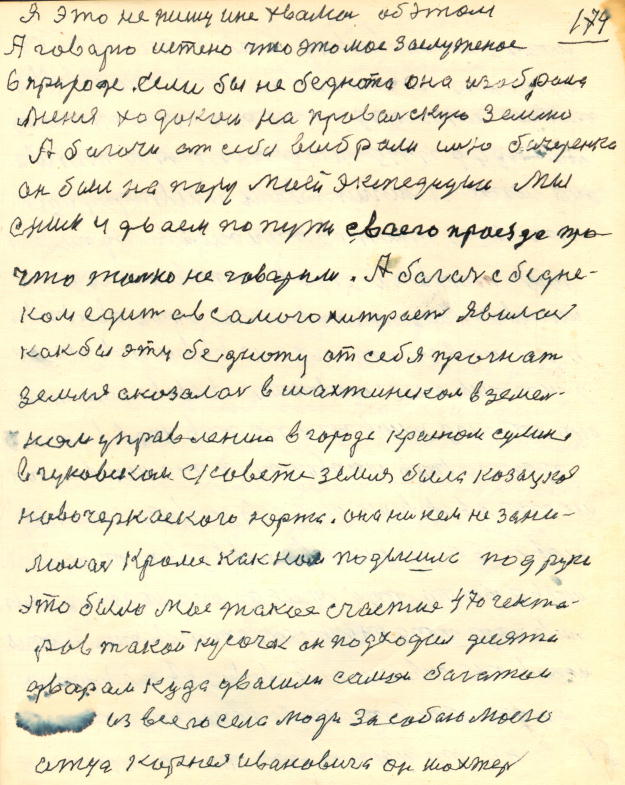 Я это не пишу и не хвалюсь об этом
174
А говорю истено что это мое заслуженое
в природе. Если бы не беднота она избрала
меня ходоком на провальскую землю
А богачи от себя выбрали илю бочеренка
он был на пару моей экспедиции Мы
сним и двоем по пути своего проезда про
что только не говарили. А богач с бедня-
ком едит авсамого хитрает явилось
как бы эту бедноту от себя прочнат
земля оказалас в шахтинском в земел-
ном управлению в городе красном сулине
в гуковском с/совете земля была козацкоя
новочеркаского юрта. она ни кем не зани-
молас кроме как нам подешила под руки
это было мое такое счастие 470 гекта-
ров такой кусочек он подходил десяти
дварам куда двошли самои богатои
из всего села люди за собаю моего
отца корнея ивановича он шохтер